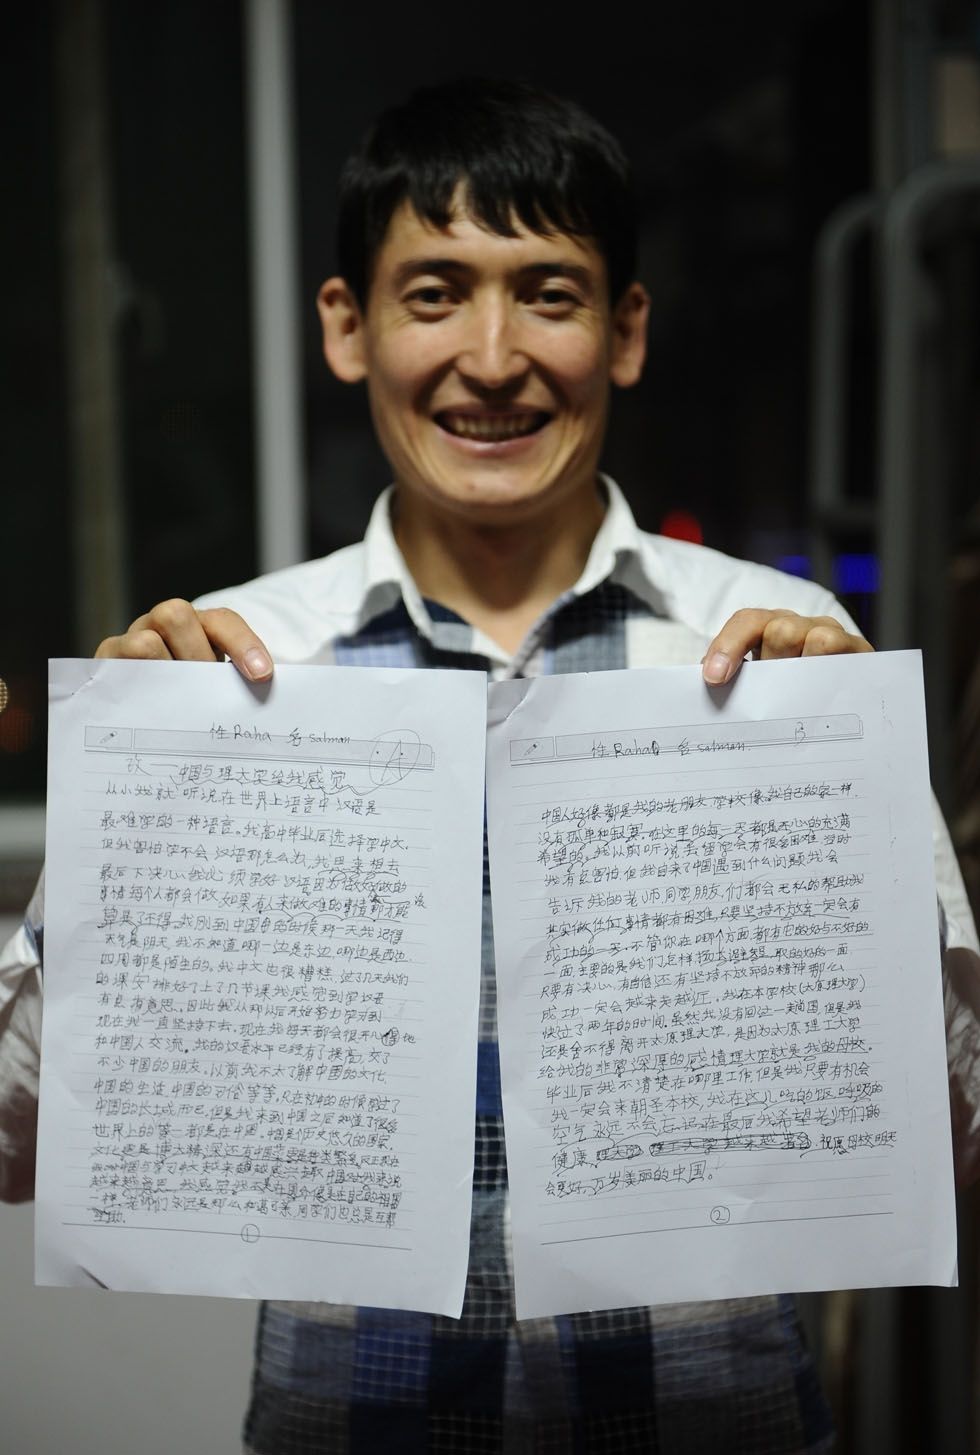 性 Raha 名 Salman
中国与理大学给我感觉
从小我就听说在世界上语言中汉语是
最难学的一样语言。我高中毕业后选择学中文,
但我害怕学不会汉语那怎么办,我思来想去
最后下决心,我必须学好汉语因为做好做的
事情每个人都会做,如果有人来做难的事情那才能
算是了不得。我刚到中国的时候那一天我记得
天气是阴天,我不知道哪一边是东边,哪边是西边,
四周都是陌生的。我中文也很糟糕,过了几天我们
的课安排好了上了几节课我感觉到学汉语
有意思。因此我从那以后开始努力学习到
现在我一直坚持下去。现在我每天都会很开心地
和中国人交流。我的汉语水平已经有了提高,交了
不少中国的朋友。以前我不太了解中国的文化,
中国的生活,中国的习俗等等,只在初中的时候听过了
中国的长城而已,但是我来到中国之后知道了很多
世界上的第一都是在中国。中国是历史悠久的国家,
文化也是博大精深
中国与学习中文越来越感兴趣,中国对我来说
越来越 我感觉我不是在国外像是在自己的祖国
一样,老师们永远是那么和蔼可亲,同学们也总是互帮
互助.
①
性 Raha 名 Salman.
中国人好像都是我的老朋友,学校像我自己的家一样,
没有孤单和寂寞,在这里的每一天都是开心的充满
希望的。我以前听说去留学会有很多困难,当时
我有点害怕,但我自来了中国遇到什么问题我会
告诉我的老师,同学朋友,们都会无私的帮助我
其实做任何事情都有困难,只要坚持不放弃一定会有
成功的一天,不管你在哪个方面,都有它的好与不好的
一面,主要的是我们怎样扬长避短,取的好的一面
只要有决心,有自信还有坚持不放弃的精神那么
成功一定会越来越近,我在本学校(太原理大学)
快过了两年的时间。虽然我没有回过一趟国,但是我
还是舍不得离开太原理大学,是因为太原理工大学
给我的非常深厚的感情理大学就是我的母校。
毕业后我不清楚在哪里工作,但是我只要有机会
我一定会来朝圣本校,我在这儿吃的饭呼吸的
空气永远不会忘记,在最后我希望老师们的
健康, 祝愿母校明天
会更好,万岁美丽的中国。
②